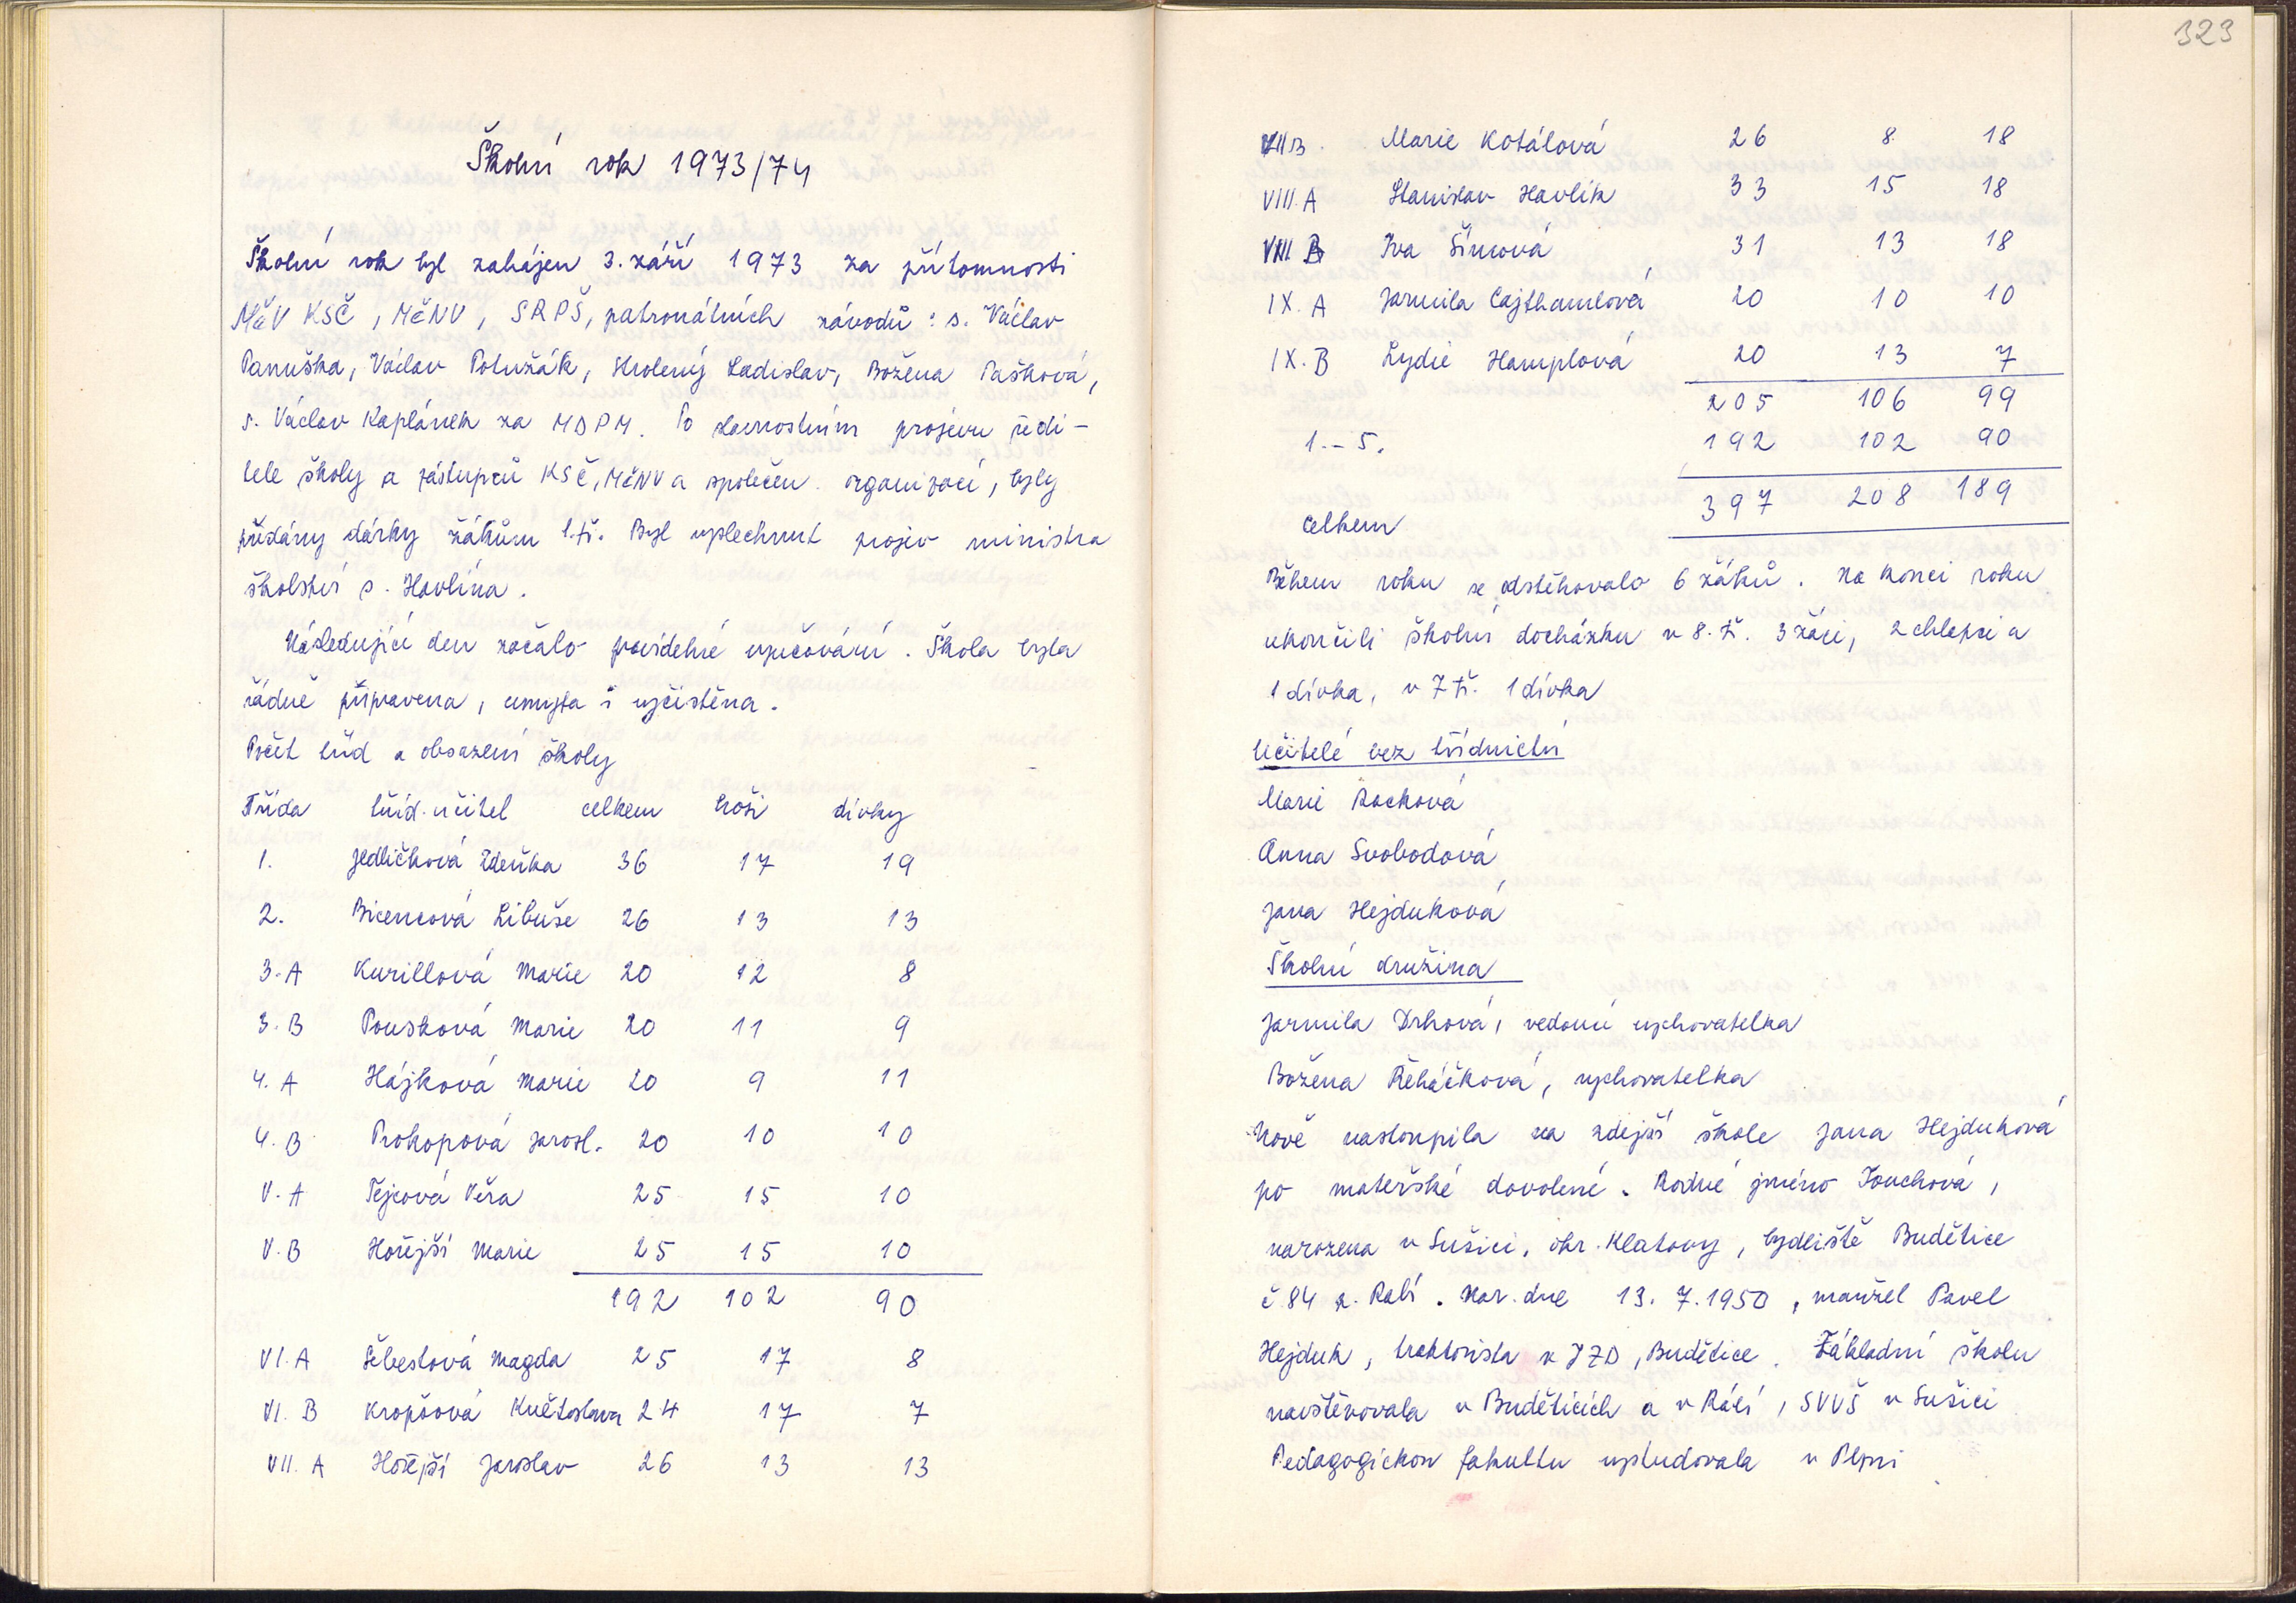 Školní rok 1973/74
Školní rok byl zahájen 3. září 1973 za přítomnosti
MěV KSČ, MěNV, SRPŠ, patronátních závodů: s. Václav
Panuška, Václav Potužák, Skolený Ladislav, Božena Pašková,
s. Václav Kaplánek za MDPM. Po slavnostním projevu ředi-
tele školy a zástupců KSČ, MěNV a společen. organizací, byly
předány dárky žákům 1. tř. Byl vyslechnut projev ministra
školství s. Havlína.
Následující den začalo pravidelné vyučování. Škola byla
řádně připravena, umyta i vyčistěna.
Počet tříd a obsazení školy
Třída tříd. učitel celkem hoši dívky
1. Jedličková Zdeňka 36 17 19
2. Bicencová Libuše 26 13 13
3. A Kurillová Marie 20 12 8
3. B Pousková Marie 20 11 9
4. A Hájková Marie 20 9 11
4. B Prokopová Jarosl. 20 10 10
V. A Tejcová Věra 25 15 10
V. B Hořejší Marie 25 15 10
192 102 90
VI. A Šebestová Magda 25 17 8
VI. B Kropšová Květoslava 24 17 7
VII. A Hořejší Jaroslav 26 13 13
323
VII B. Marie Kotálová 26 8 18
VIII. A Stanislav Havlík 33 15 18
VIII B Iva Šímová 31 13 18
IX. A Jarmila Cajthamlová 20 10 10
IX. B Lydie Hamplová 20 13 7
205 106 99
1.-5. 192 102 90
celkem 397 208 189
Během roku se odstěhovalo 6 žáků. Na konci roku
ukončili školní docházku v 8. tř. 3 žáci, 2 chlapci a
1 dívka, v 7 tř. 1 dívka
Učitelé bez třídnictví
Marie Rocková
Anna Svobodová
Jana Hejduková
Školní družina
Jarmila Drhová, vedoucí vychovatelka
Božena Řeháčková, vychovatelka
Nově nastoupila na zdejší škole Jana Hejduková
po mateřské dovolené. Rodné jméno Touchová,
narozena v Sušici, okr. Klatovy, bydliště Budětice
č 84 p. Rabí. Nar. dne 13. 7. 1950, manžel Pavel
Hejduk, traktorista v JZD, Budětice. Základní školu
navštěvovala v Buděticích a v Rábí, SVVŠ v Sušici
Pedagogickou fakultu vystudovala v Plzni